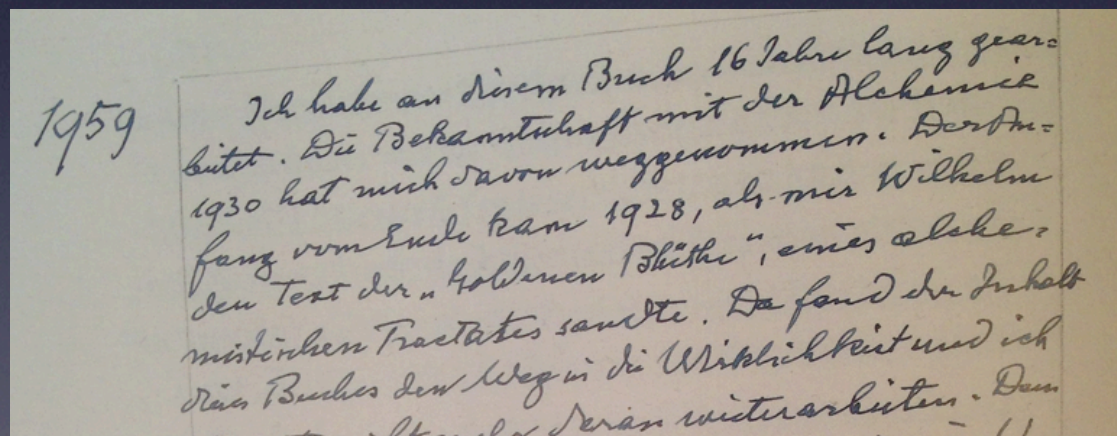 1959
Ich habe an diesem Buch 16 Jahre lang gear=
beitet. Die Bekanntschaft mit der Alchemie
1930 hat mich davon weggenommen. Der An=
fang vom Ende kam 1928, als mir Wilhelm
den Text der „Goldenen Blüthe", eines alche=
mistischen Tractates sandte. Da fand der Inhalt
dieses Buches den Weg in die Wirklichkeit und ich
daran weiterarbeiten. Dem